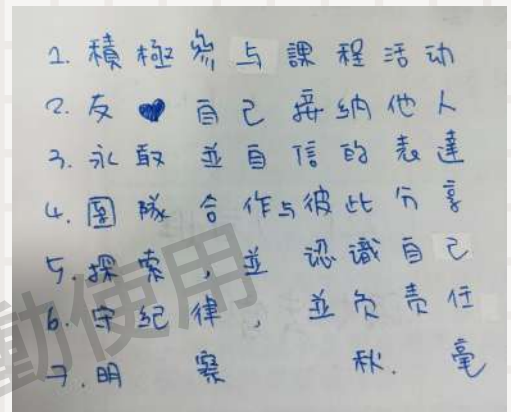 1. 積極参与課程活动
2. 友♥自己接纳他人
3. 永敢並自信的表達
4. 團隊合作与彼此分享
5. 探索，並認識自己
6. 守紀律，並负責任
7. 明察秋.毫
動使用